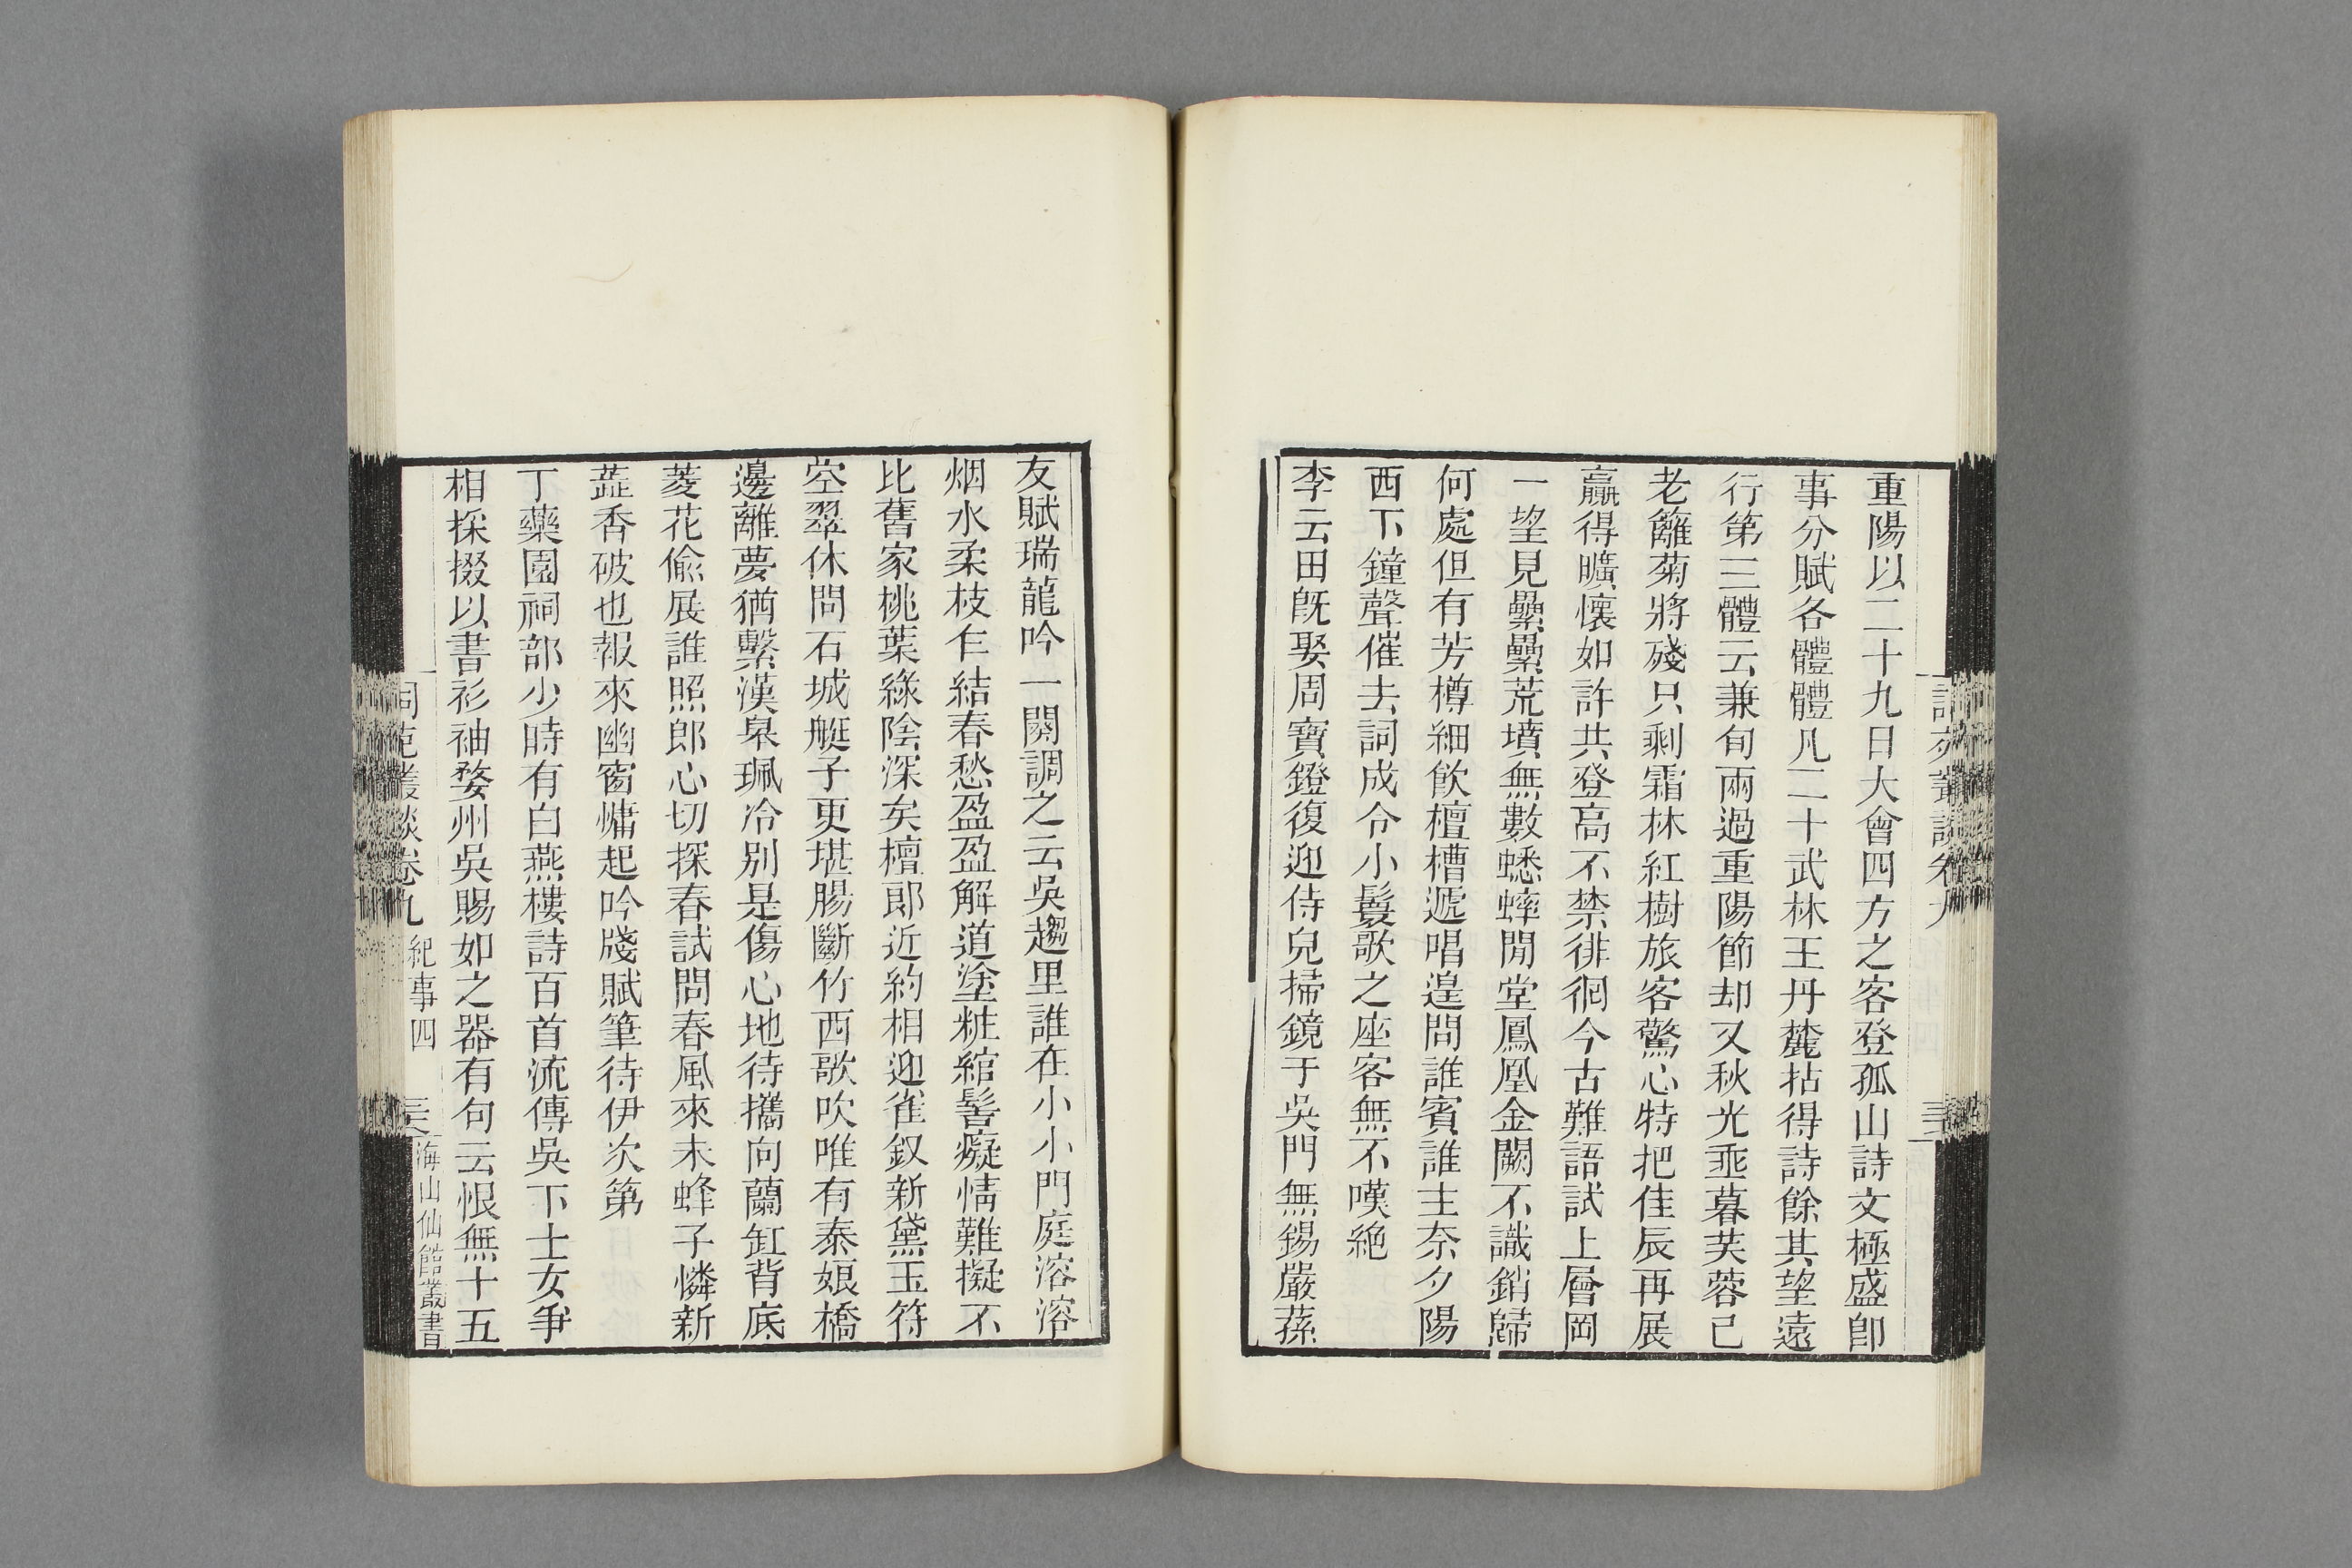 重陽以二十九日大會四方之客登孤山詩文極盛卽
事分賦各體體凡二十武林王丹麓拈得詩餘其望遠
行第三體云兼旬兩過重陽節却又秋光垂暮芙蓉已
老籬菊將殘只剩霜林紅樹旅客驚心特把佳辰再展
贏得曠懷如許共登高不禁徘徊今古難語試上層岡
一望見纍纍荒墳無數蟋蟀閒堂鳳凰金闕不識銷歸
何處但有芳樽細飲檀槽遞唱遑問誰賓誰主奈夕陽
西下鐘聲催去詞成令小鬟歌之座客無不嘆絶
李云田旣娶周寶鐙復迎侍兒掃鏡于吳門無錫嚴蓀
友賦瑞龍吟一闋調之云吳趨里誰在小小門庭溶溶
烟水柔枝乍結春愁盈盈解道塗粧綰髻癡情難擬不
比舊家桃葉綠陰深矣檀郎近約相迎雀釵新黛玉符
空翠休問石城艇子更堪腸斷竹西歌吹唯有泰娘橋
邊離夢猶繫漢皐珮冷別是傷心地待攜向蘭缸背底
菱花偸展誰照郎心切探春試問春風來未蜂子憐新
蕋香破也報來幽窗慵起吟牋賦筆待伊次第
丁藥園祠部少時有白燕樓詩百首流傳吳下士女爭
相採掇以書衫袖婺州吳賜如之器有句云恨無十五
詞苑叢談卷九 紀事四
海山仙館叢書